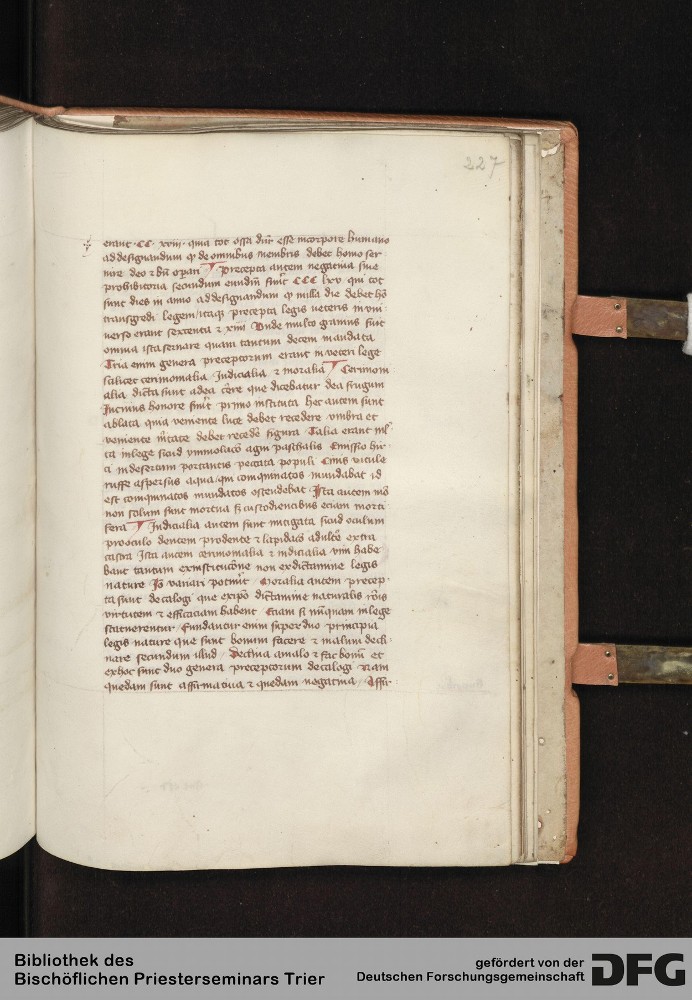 227
erant ·CC· xxiii· quia tot ossa dnr esse in corpore humano
ad designandum qȝ de omnibus membris debet homo ser
uire deo ⁊ bn̄ opari ¶ precepta autem negatiua siue
prohibitoria secundum eundm̄ sunt CCC lxv qui tot
sunt dies in anno ad designandum qȝ nulla die debet hō
transgredi legem / itaqȝ precepta legis veteris in vni
uerso erant sexcenta ⁊ xiii Unde multo grauius fuit
omnia ista seruare quam tantum decem mandata
Tria enim genera preceptorum erant in veteri lege
scilicet cerimonialia Judicialia ⁊ moralia ¶ Cerimoni
alia dicta sunt a dea cērere que dicebatur dea frugum
In cuius honore fuit primo instituta hec autem sunt
ablata quia veniente luce debet recedere vmbra et
veniente v̄itate debet recede figura Talia erant ml
ta in lege sicud ymmolacō agni paschalis Emissio hir
ci in desertum portantis peccata populi Cinis vitule
ruffe aspersus aqua qui coinquinatos mundabat id
est coinquinatos mundatos ostendebat Ista autem nō
non solum sunt mortua sȝ custodiencibus eciam morti
fera ¶ Iudicialia autem sunt mitigata sicud oculum
pro oculo dentem pro dente ⁊ lapidacō adultē extra
castra Ista autem cerimonialia ⁊ iudicialia vim habe
bant tantum ex institucōne non ex dictamine legis
nature Iō variari potuit Moralia autem precep
ta sunt decalogi que ex ipō dictamine naturalis rōnis
virtutem ⁊ efficaciam habent Eciam si nūquam in lege
statuerentur Fundantur enim super duo principia
legis nature que sunt bonum facere ⁊ malum decli
nare secundum illud / Declina a malo ⁊ fac bonū et
ex hoc sunt duo genera preceptorum decalogi Nam
quedam sunt affirmatiua ⁊ quedam negatiua / Affir
Bibliothek des
Bischöflichen Priesterseminars Trier
gefördert von der
Deutschen Forschungsgemeinschaft
DFG